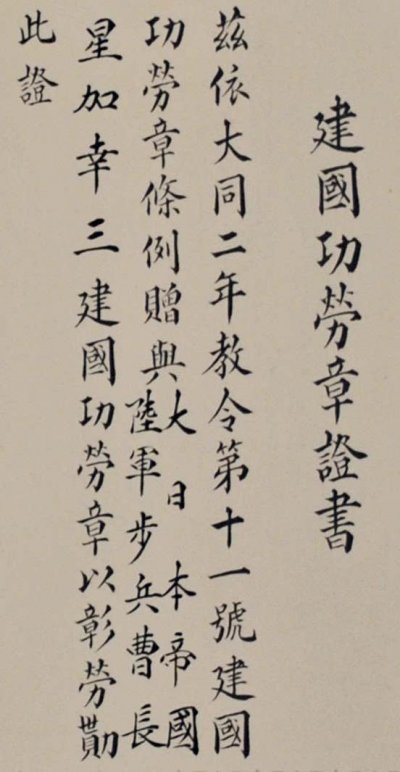 建國功勞章證書
茲依大同二年教令第十一號建國
功勞章條例贈與大日本帝國
陸軍步兵曹長
星加幸三建國功勞章以彰勞勩
此證